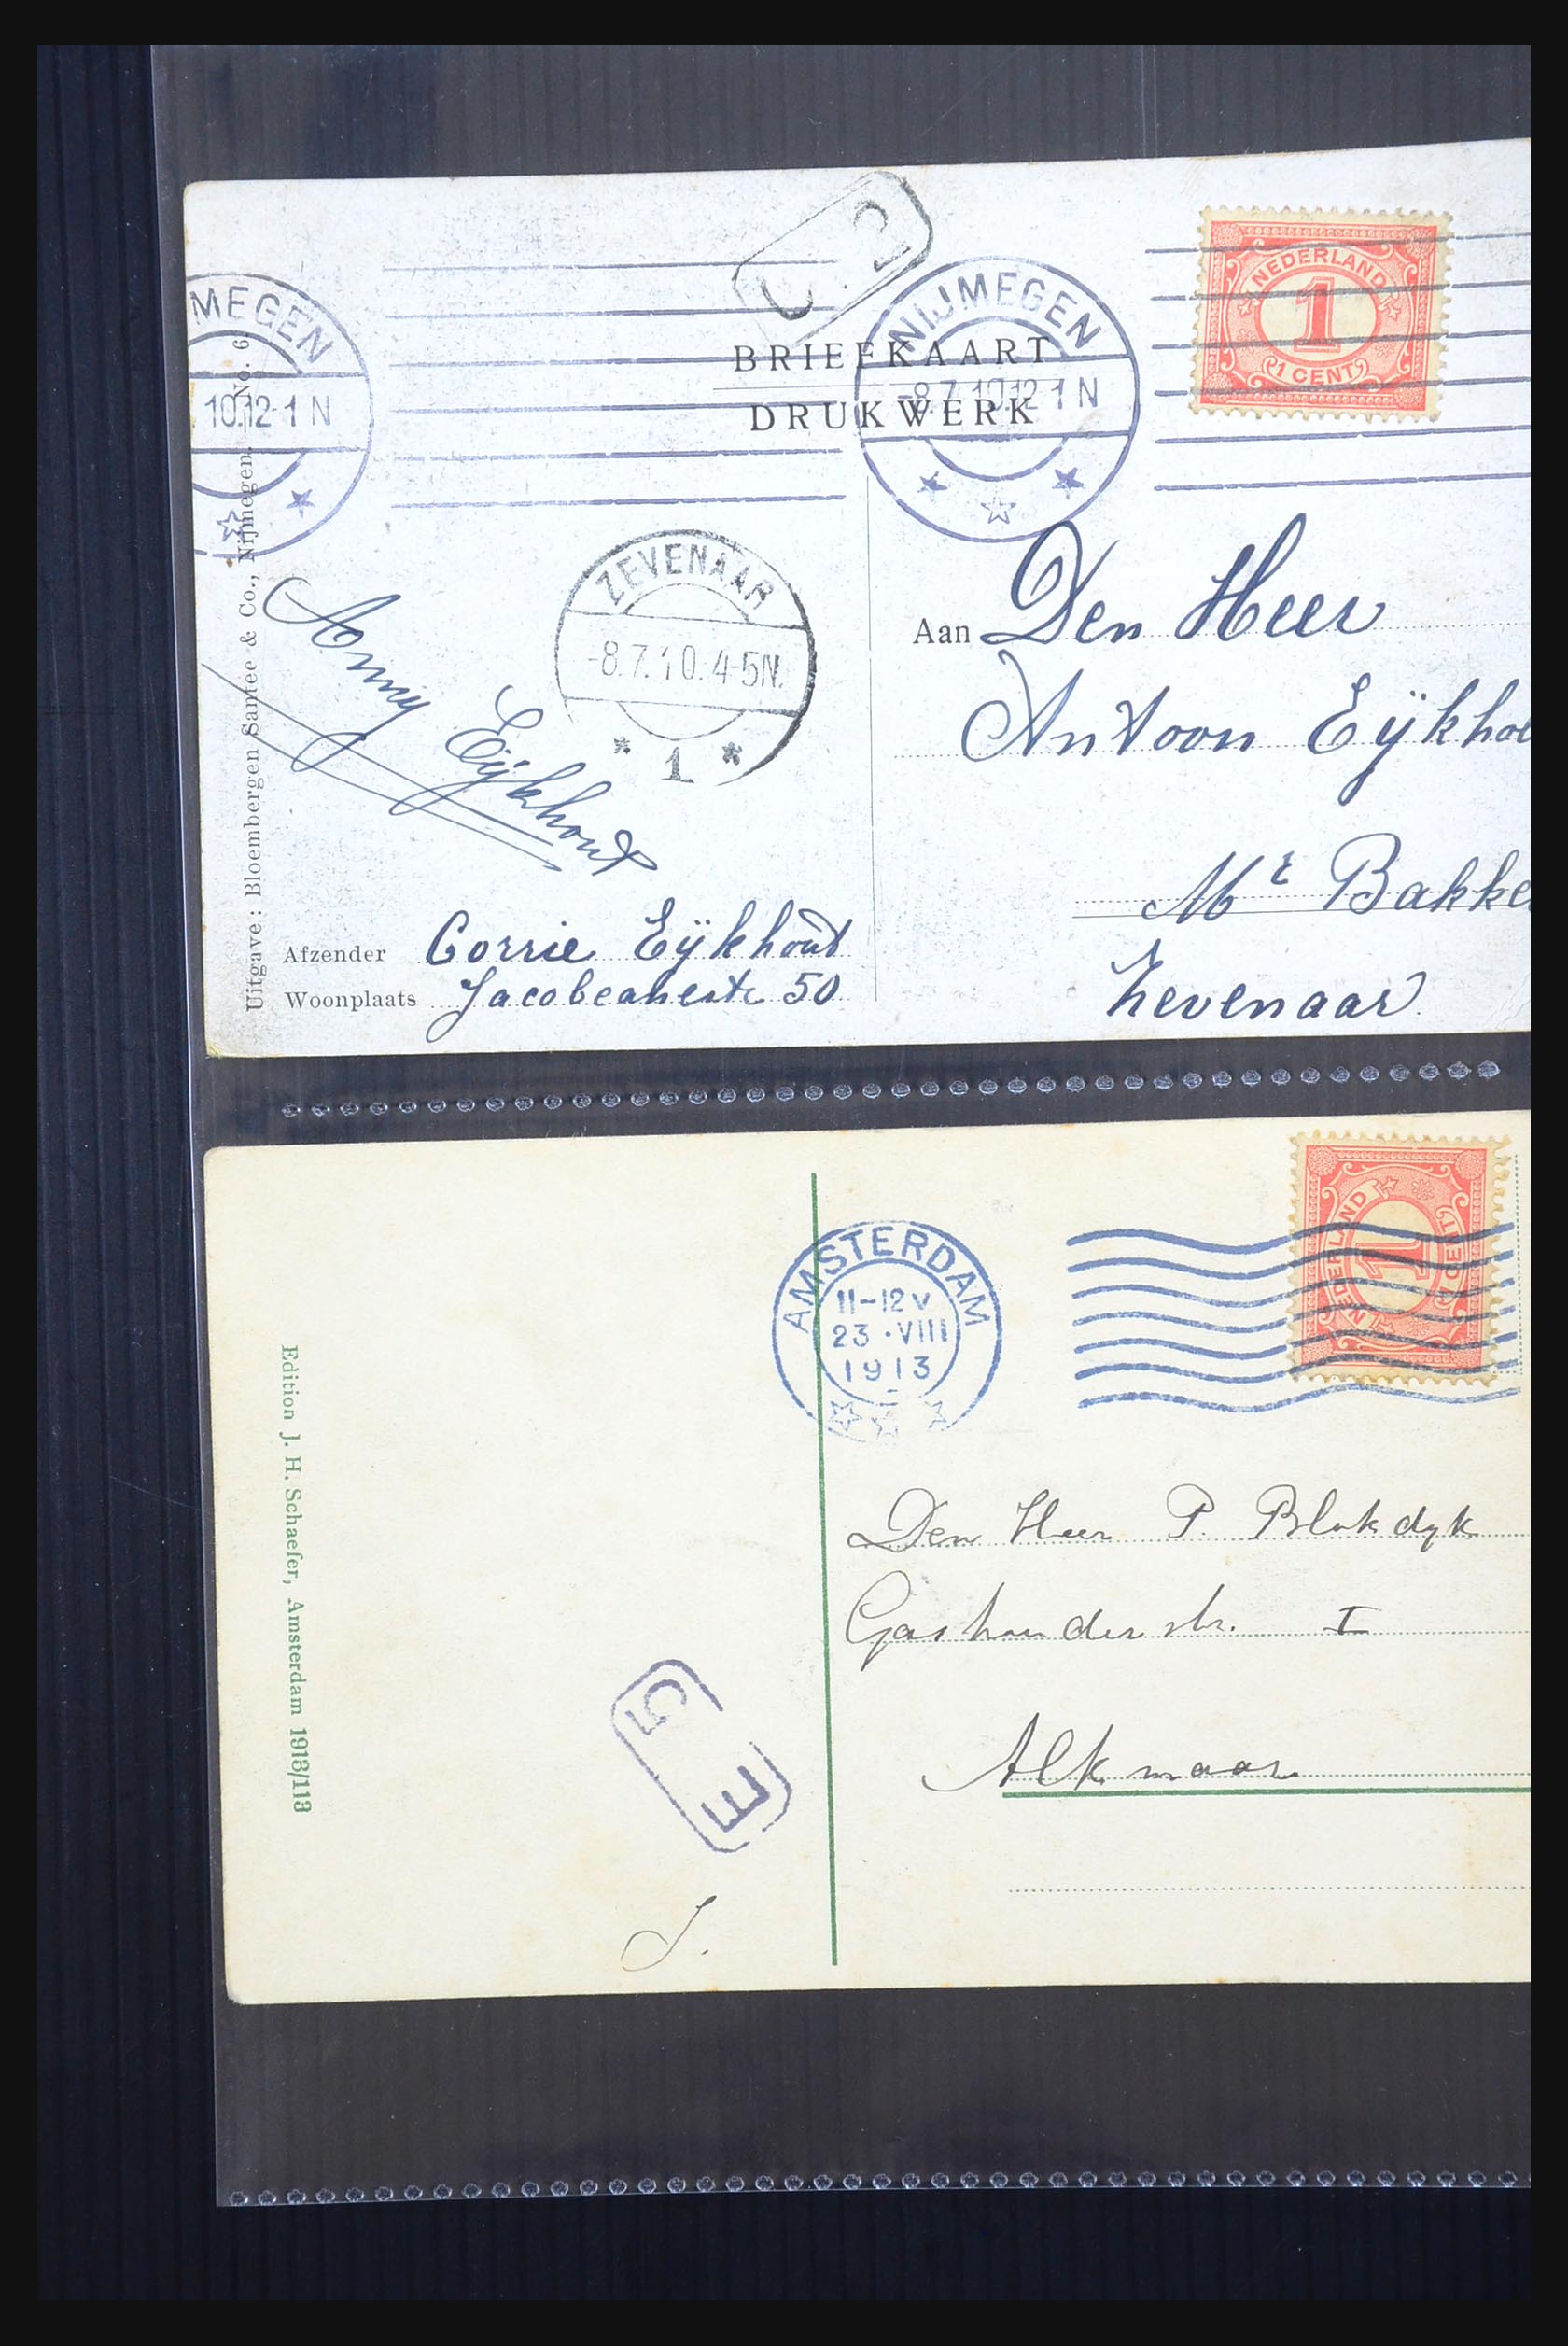 NIJMEGEN
-8.7.10.12-1 N
MEGEN
10.12-1 N
NEDERLAND
1
1 CENT
BRIEFKAART
DRUKWERK
ZEVENAAR
-8.7.10.4-5N.
1
Uitgave: Bloembergen Santee & Co., Nijmegen. No. 6
Anny Eijkhout
Aan Den Heer
Antoon Eÿkhou
Mr Bakke
Zevenaar.
Afzender Corrie Eÿkhout
Woonplaats 50
AMSTERDAM
11-12 V
23 · VIII
1913
NEDERLAND
1
1 CENT
Edition J. H. Schaefer, Amsterdam 1913/113
Den Heer P. Blokdyk
I
Alkmaar
5 E
J.